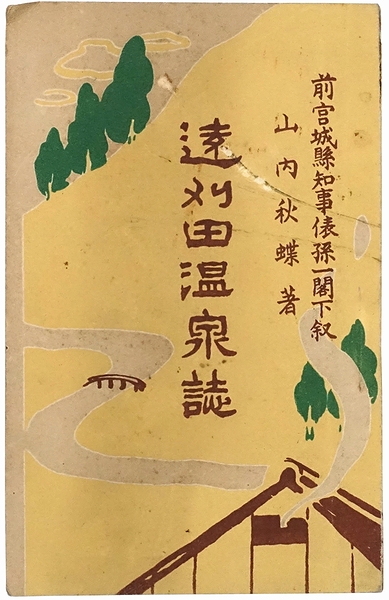 前宮城縣知事俵孫一閣下叙
山内秋蝶著
遠刈田温泉誌